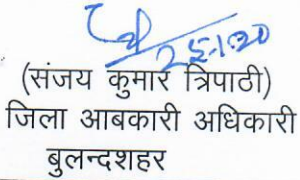 25.1.20
(संजय कुमार त्रिपाठी)
जिला आबकारी अधिकारी
बुलन्दशहर